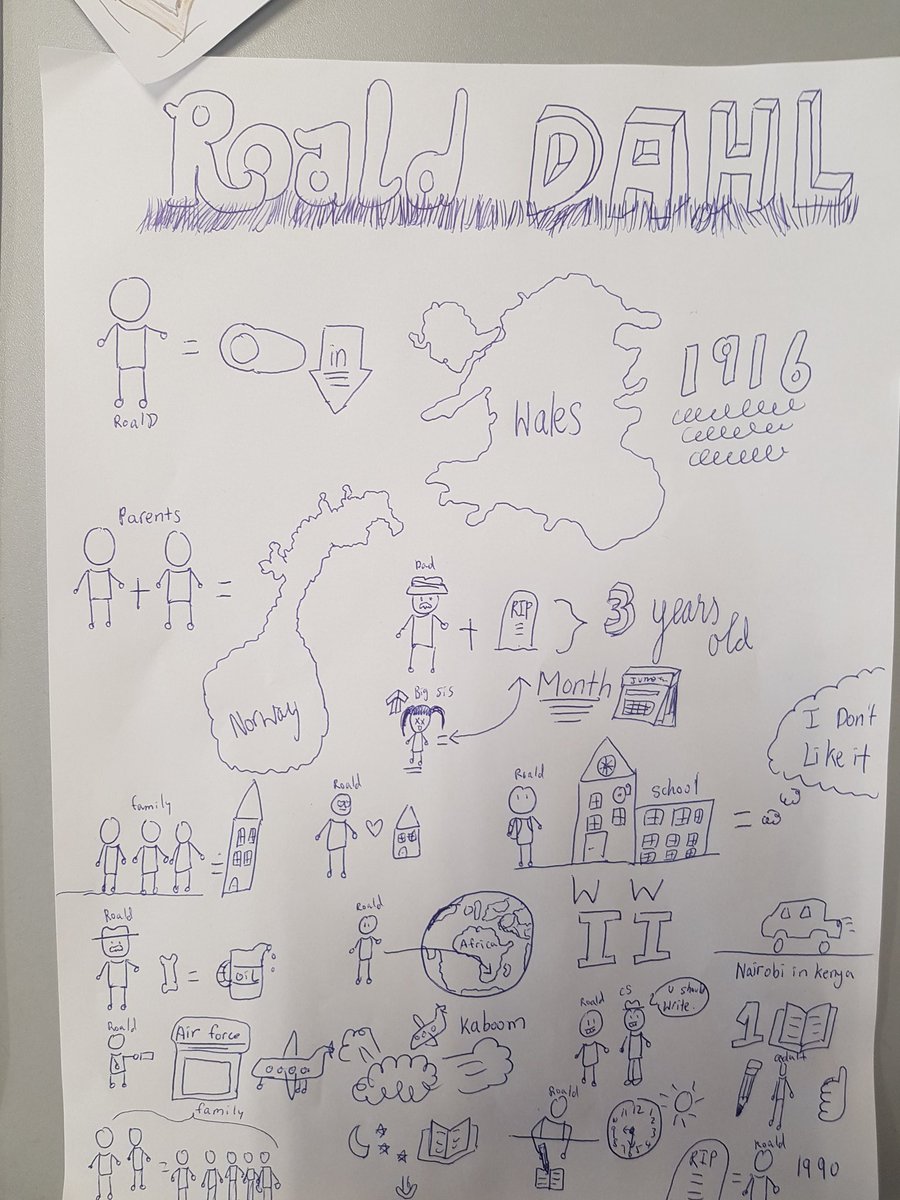 Roald DAHL
in
Roald
Wales
1916
Parents
Norway
Dad
RIP
3 years old
Big sis
Month
family
Roald
Roald
school
I Don't
Like it
Roald
OIL
Roald
Africa
W W
I I
Nairobi in kenya
Roald
Air force
Kaboom
Roald
CS
U should
Write.
1
adult
family
Roald
12
RIP
Roald
1990